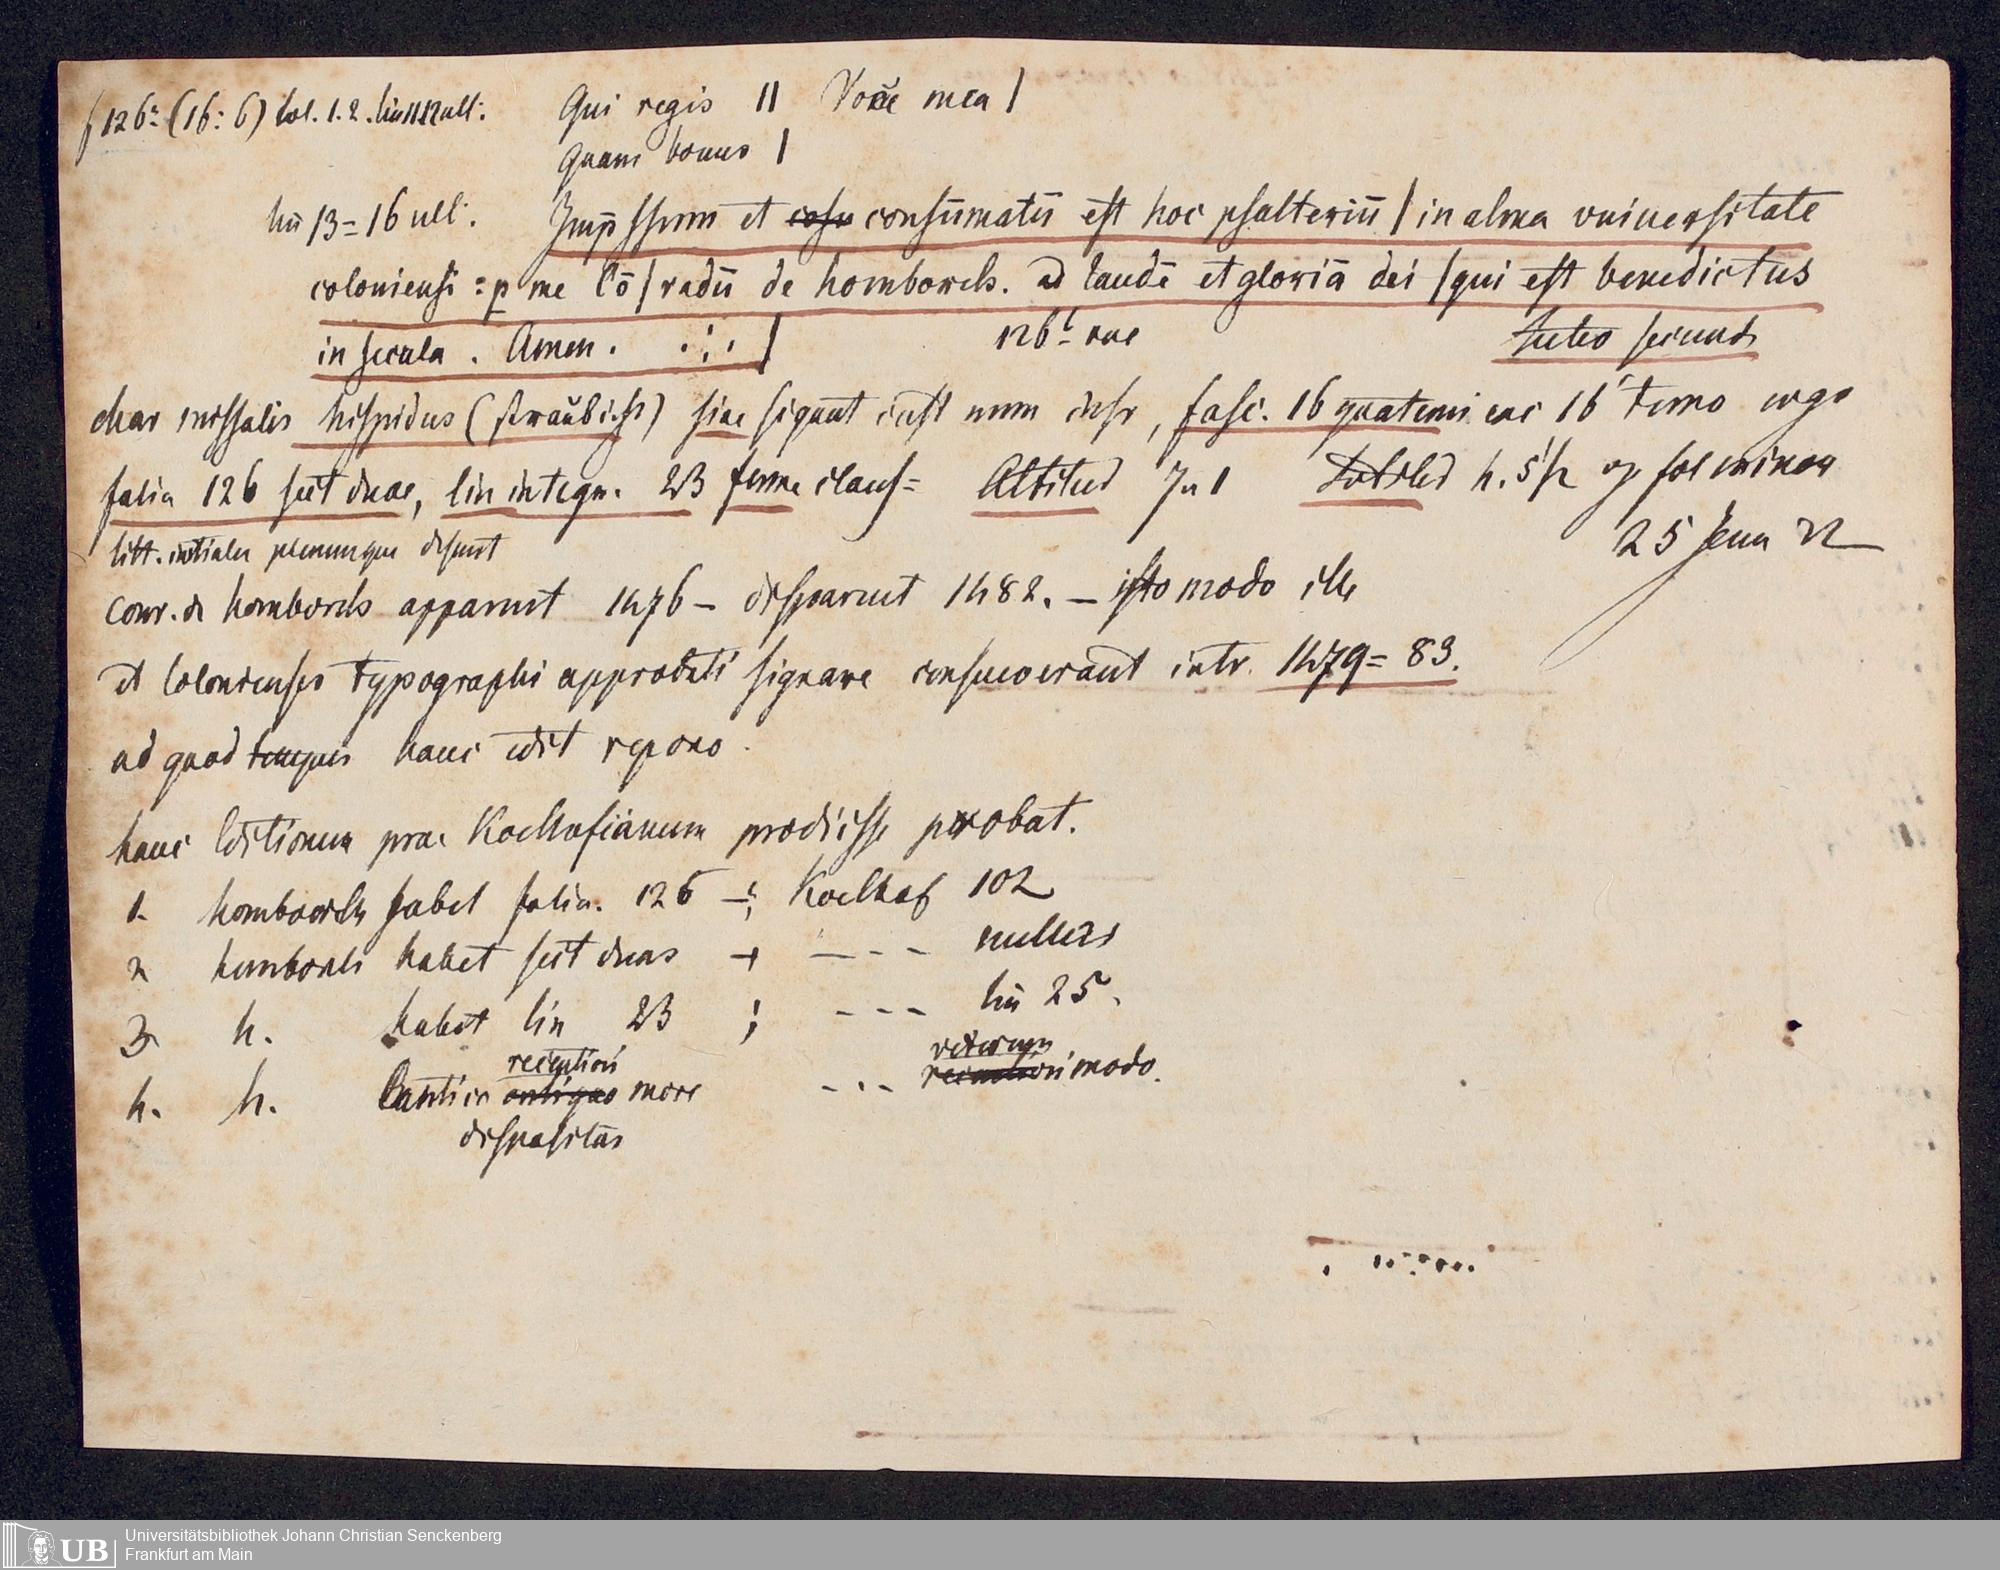 f 126ª (16: 6) Col. 1. 2. lin 11 12 ult: Qui regis || Voce mea |
Quam bonus |
lin 13=16 ult. Imp̄ssum et cosu consūmatū est hoc psalteriū | in alma vniuersitate
coloniensi : p me Cō | radū de homborch. ad laudē et gloriā dei | qui est benedictus
in secula . Amen . . : . |
126b vac
char missalis hispidus (straubicht) sine signat cust num insr, fasc. 16 quaterni exc 16 terno ergo
folia 126 sūt duae, lin integr. 23 ferme claus= Altitud 7 u 1 h. 5
litt. initiales plerumque desunt
25 Jenn 22
Conr. de homborch apparuit 1476 – disparuit 1482. – isto modo ille
et Colonienses typographi approbati signare consueverant intr. 1479=83.
ad quod tempus hanc edit repono .
hanc Editionem prae Koelhofianum prodiisse probat.
1. homborch habet folia. 126 –; Koelhof 102
2 homborch habet sūt duas – – – – nullus
3 h. habet lin 23 ; – – – lin 25.
recentiori veterum
4. h. Cantica antiquo more – – – modo.
dispositas
Universitätsbibliothek Johann Christian Senckenberg
Frankfurt am Main
UB